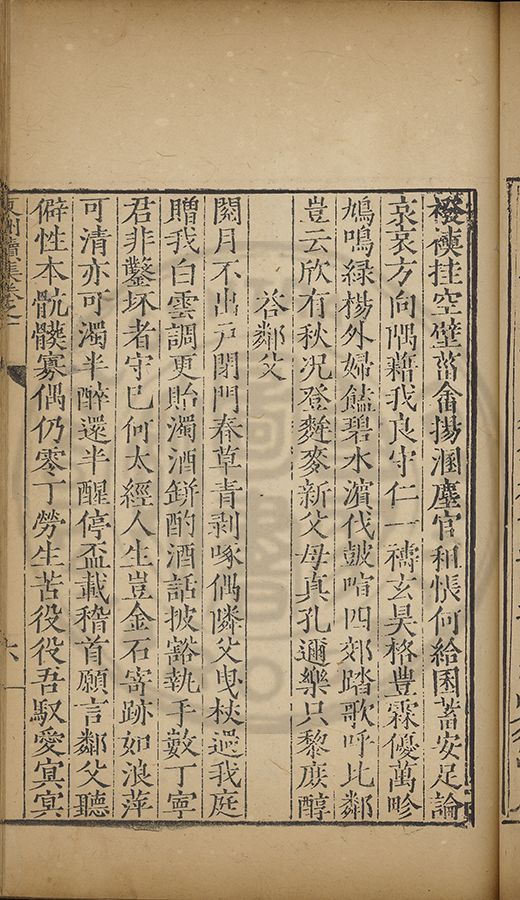 襏襫挂空壁菑畬揚涸塵官租悵何給囷蓄安足論
哀哀方向隅藉我良守仁一禱玄昊格豐霖優萬畛
鳩鳴綠楊外婦饁碧水濵伐鼓喧四郊踏歌呼比鄰
豈云欣有秋况登麰麥新父母真孔邇樂只黎庶醇
答鄰父
閱月不出戸閉門春草青剥啄偶隣父曳杖過我庭
贈我白雲調更貽濁酒缾酌酒話披豁執手藪丁寧
君非鑿坏者守已何太經人生豈金石寄跡如浪萍
可清亦可濁半醉還半醒停盃載稽首願言鄰父聽
僻性本骯髒寡偶仍零丁勞生苦役役吾馭愛冥冥
六